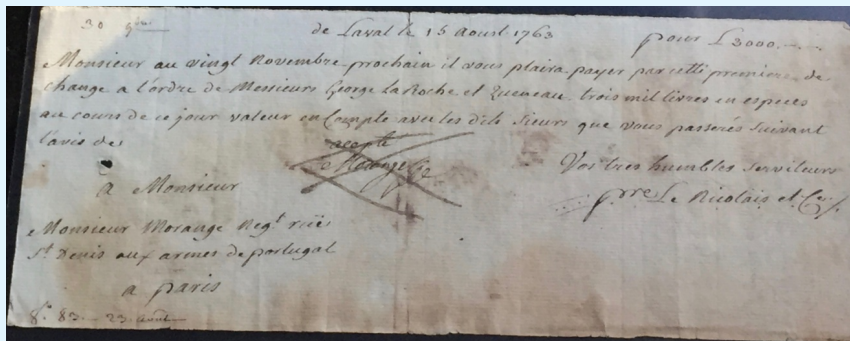 30 9bre
de Laval le 15 Aoust 1763
pour £ 3000.--
Monsieur au vingt Novembre prochain il vous plaira payer par cette premiere de
change a l'ordre de Messieurs George LaRoche et trois mil livres en especes
au cours de ce jour valeur en Compte avec les dits Sieurs que vous passerés suivant
l'avis de
acepté
Morange
Vos tres humbles serviteurs
pre Le Nicolais et Ce
A Monsieur
Monsieur Morange Negt rüe
St Denis aux armes de portugal
a paris
83 - 23 aoust